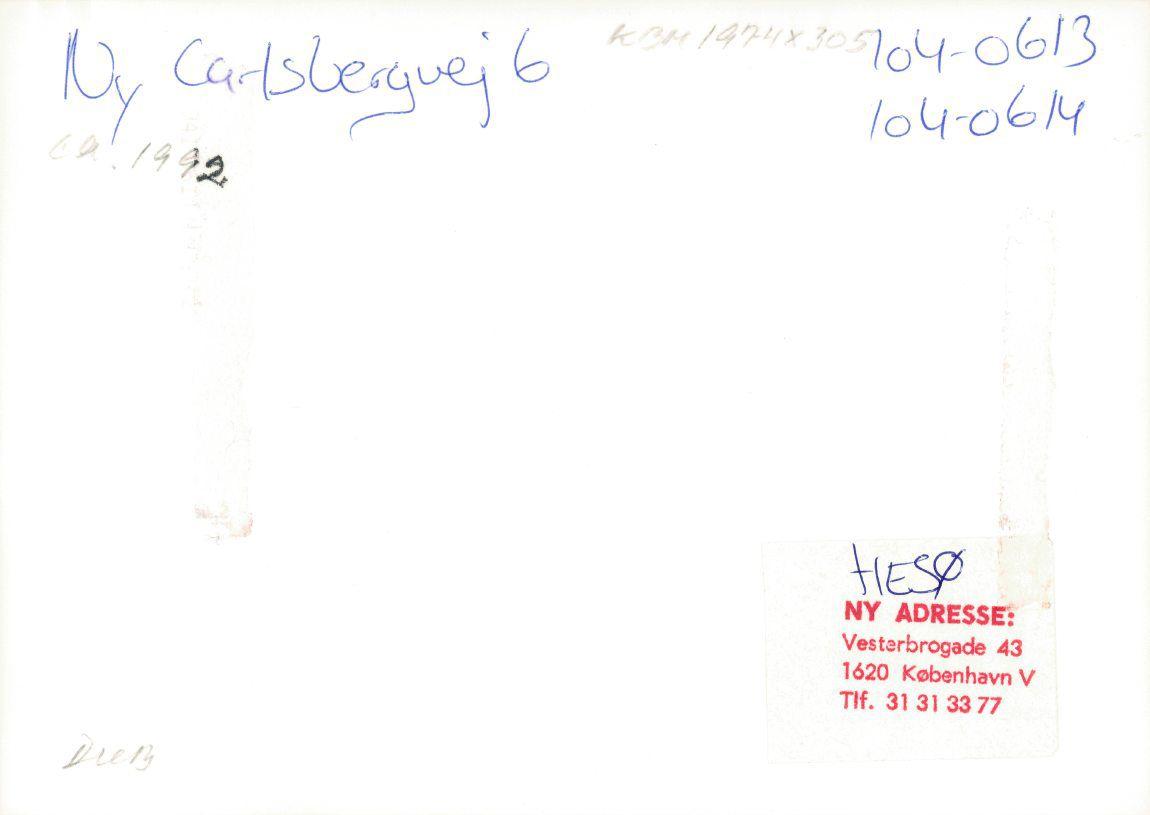 Ny Carlsbergvej 6
KBM 1974x305
104-0613
104-0614
ca. 1992
HESØ
NY ADRESSE:
Vesterbrogade 43
1620 København V
Tlf. 31 31 33 77